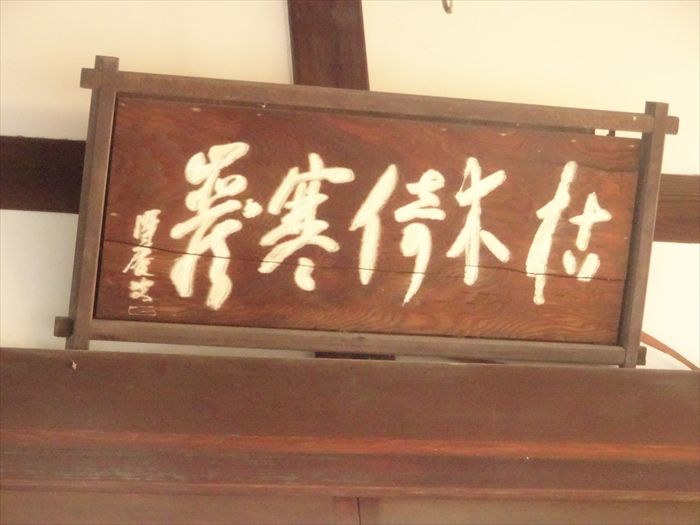 枯木倚寒巖